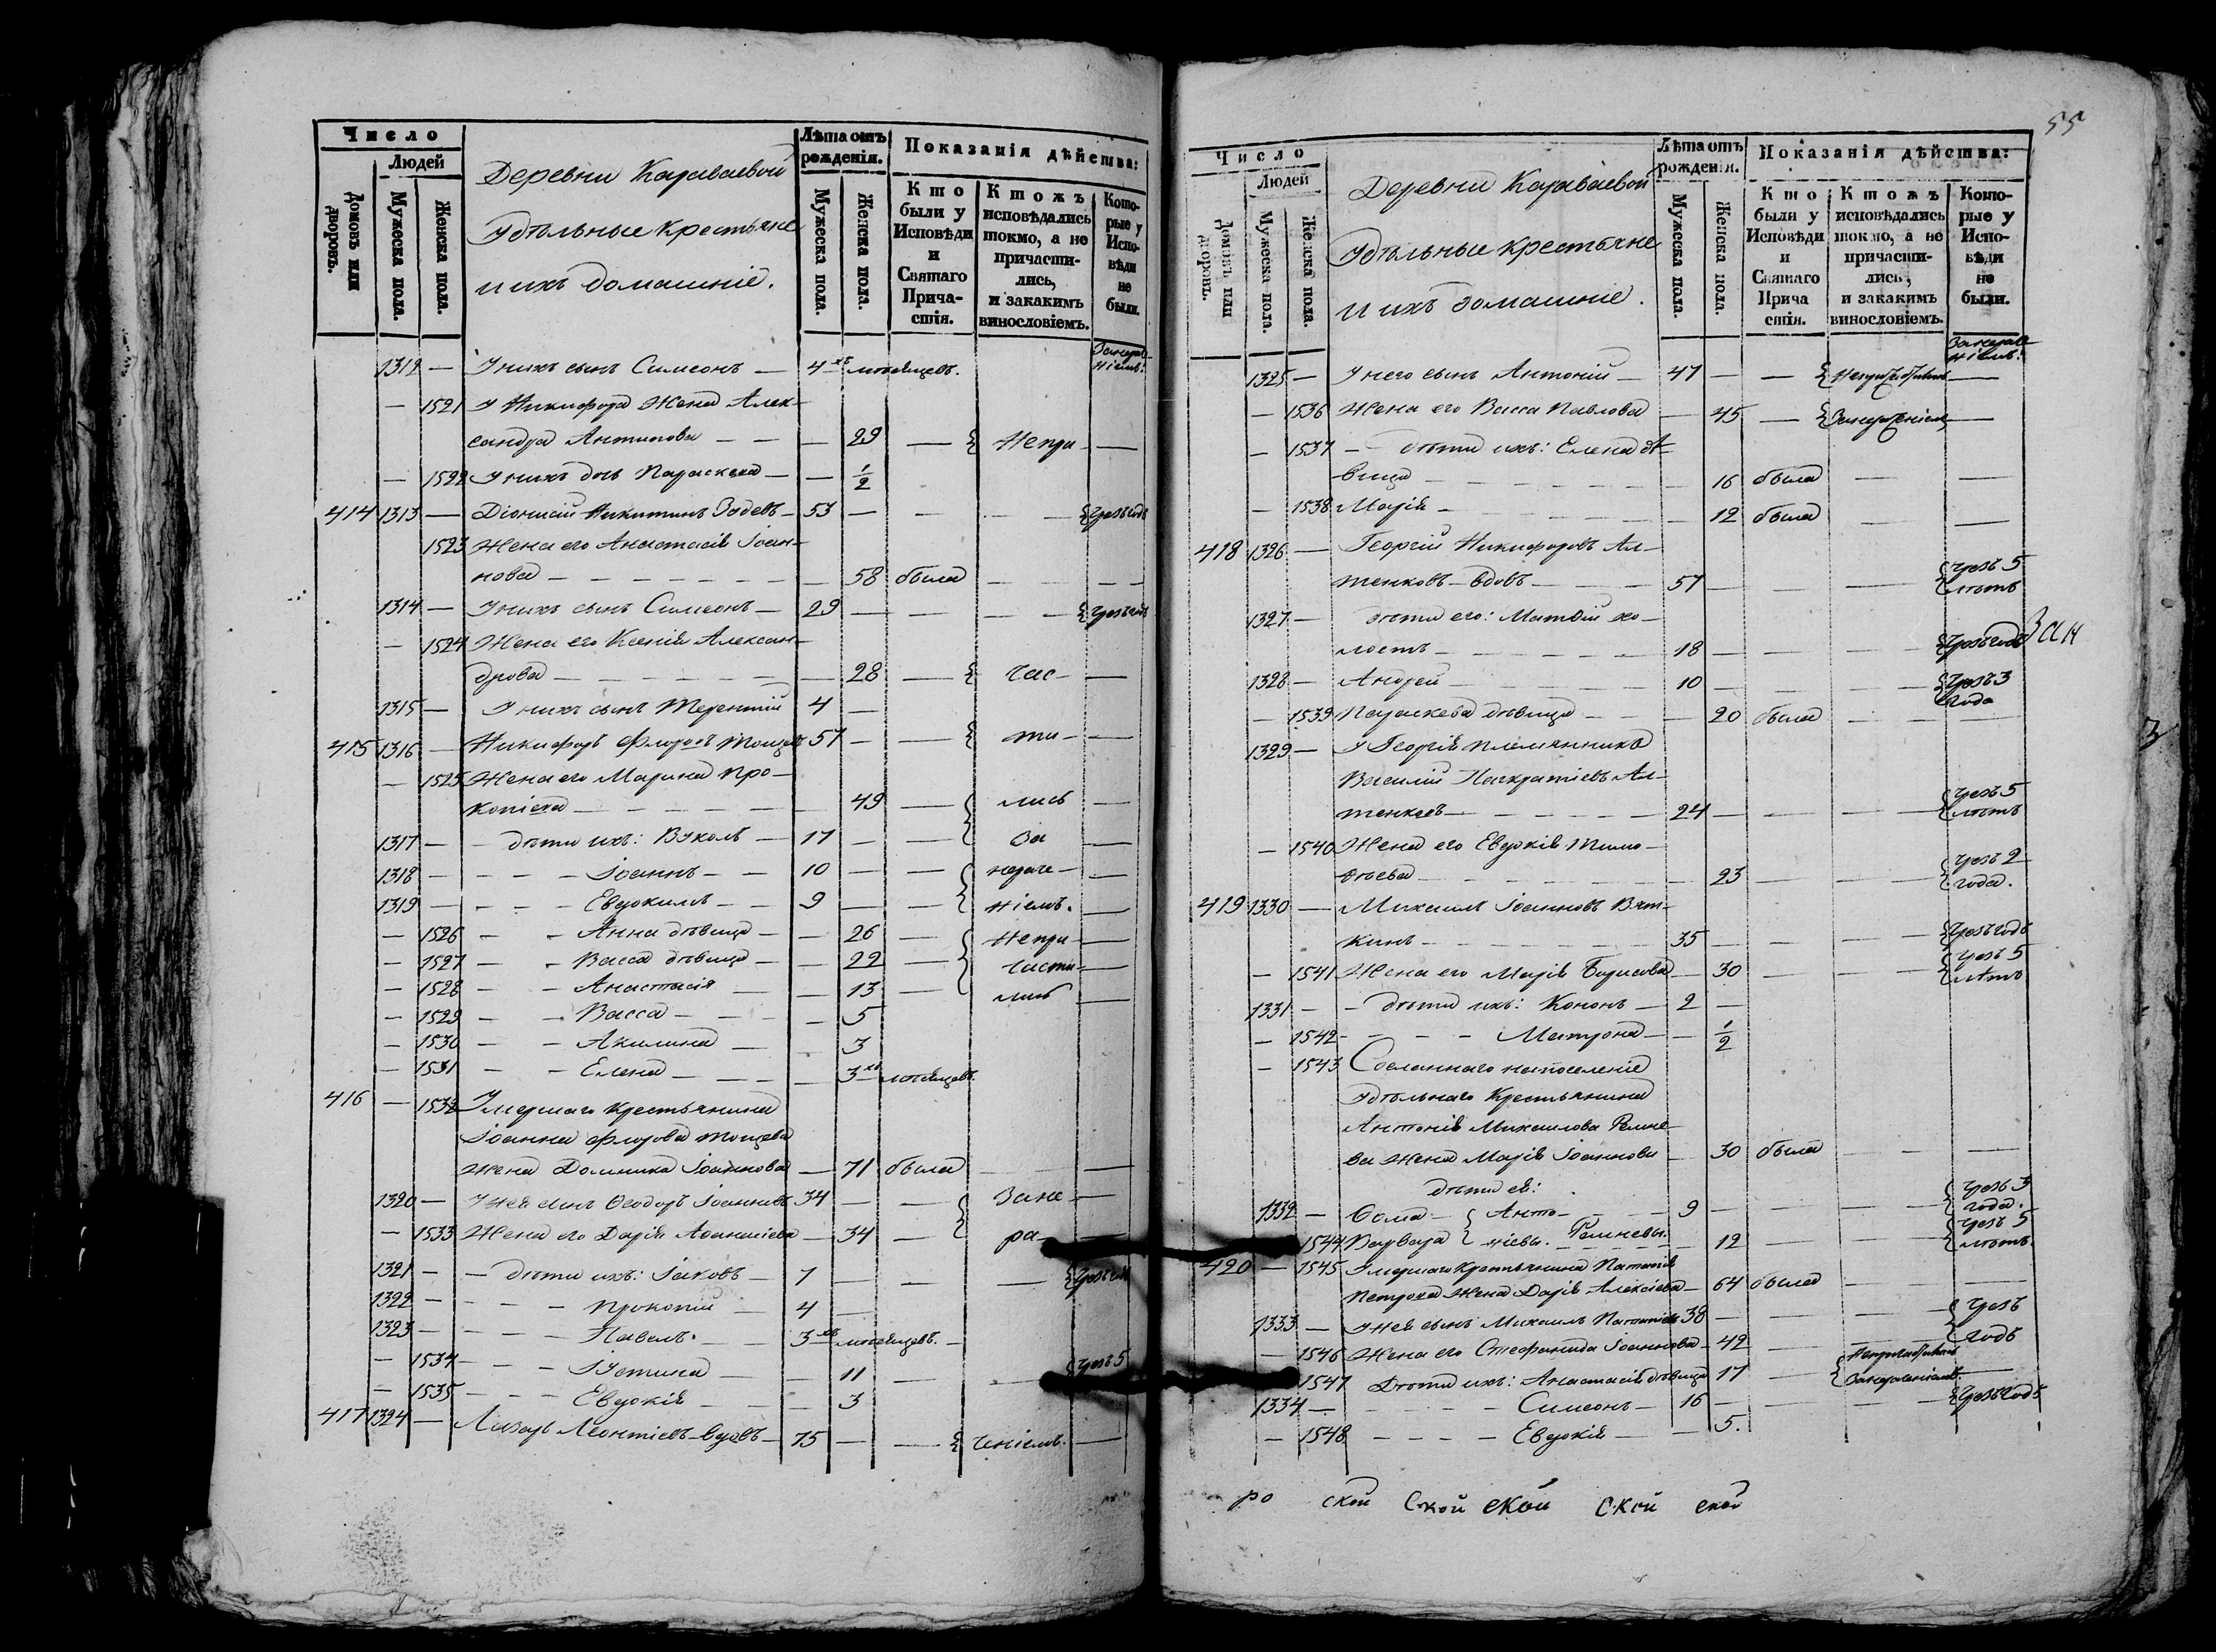 Число
Людей
Домовъ или дворовъ.
Мужеска пола.
Женска пола.
Деревни Караваевой
Удѣльные крестьяне
и ихъ домашніе.
Лѣта отъ рожденія.
Мужеска пола.
Женска пола.
Показанія дѣйства:
Кто были у Исповѣди и Святаго Прича-стія.
Ктожъ исповѣдались токмо, а не причасти-лись, и закакимъ винословіемъ.
Кото-рые у Испо-вѣди не были.
1312 — У нихъ сынъ Симеонъ — 4хъ мѣсяцевъ.
— 1521 У Никифора жена Алек-
сандра Антипова — — — 29 — Непри- —
— 1522 У нихъ дочь Параскева — — 1/2
414 1313 — Діонисій Никитинъ — 53 — — — Чрезъ годъ
1523 Жена его Анастасія Іоан-
нова — — 58 была — —
1314 — У нихъ сынъ Симеонъ — 29 — — — Чрезъ годъ
— 1524 Жена его Ксенія Алексан-
дрова — — 28 — час- —
1315 — У нихъ сынъ Терентій 4 —
415 1316 — Никифоръ Флоровъ 57 — — ти- —
— 1525 Жена его Марина Про-
копіева — 49 — лись —
1317 — — дѣти ихъ: Вуколъ — 17 — — За —
1318 — — — — Іоаннъ — — 10 — — нераче- —
1319 — — — — Евдокимъ — — 9 — — ніемъ. —
— 1526 — — Анна дѣвица — — 26 — Непри- —
— 1527 — — Васса дѣвица — — 22 — части- —
— 1528 — — Анастасія — — 13 — лись —
— 1529 — — Васса — — — 5
— 1530 — — Акилина — — 3
— 1531 — — Елена — — — 3хъ мѣсяцевъ.
416 — 1532 Умершаго крестьянина
Іоанна Флорова Тощева
жена Домника Іоаннова — 71 была — —
1320 — У ней сынъ Ѳеодоръ Іоанновъ 34 — — Зане- —
— 1533 Жена его Дарія Аѳанасіева — 34 — ра- —
1321 — — дѣти ихъ: Іаковъ — 7 — — — Чрезъ годъ
1322 — — — — Прокопій — 4 —
1323 — — — — Павелъ. — 3хъ мѣсяцевъ. —
— 1534 — — — Іустина — — 11 — — Чрезъ 5
— 1535 — — — Евдокія — — — 3
417 1324 — Лазарь Леонтіевъ вдовъ — 75 — — ченіемъ. —
55
Число
Людей
Домовъ или дворовъ.
Мужеска пола.
Женска пола.
Деревни Караваевой
Удѣльные крестьяне
и ихъ домашніе.
Лѣта отъ рожденія.
Мужеска пола.
Женска пола.
Показанія дѣйства:
Кто были у Исповѣди и Святаго Прича стія.
Ктожъ исповѣдались токмо, а не причасти-лись, и закакимъ винословіемъ.
Кото-рые у Испо-вѣди не были.
1325 — У него сынъ Антоній — 47 — —
— 1536 Жена его Васса Павлова — 45 — Занераченіемъ —
— 1537 — дѣти ихъ: Елена дѣ-
вица — — 16 была — —
— 1538 Марія — — 12 была — —
418 1326 — Георгій Никифоровъ Ал-
тенковъ — вдовъ — 57 — — — Чрезъ 5 лѣтъ
1327 — дѣти его: Матѳій хо-
лостъ — 18 — — — Чрезъ годъ
1328 — Андрей — 10 — — — Чрезъ 3 года
— 1539 Параскева дѣвица — — — 20 была — —
1329 — У Георгія племянникъ
Василій Панкратіевъ Ал-
тенковъ — 24 — — — Чрезъ 5 лѣтъ
— 1540 Жена его Евдокія Тимо-
ѳѣева — — 23 — — Чрезъ 2 года.
419 1330 — Михаилъ Іоанновъ Вят-
кинъ — 35 — — — Чрезъ годъ
— 1541 Жена его Марія Борисова — 30 — — Чрезъ 5 лѣтъ
1331 — — дѣти ихъ: Кононъ — 2 —
— 1542 — — — Матрона — — 1/2
— 1543 Сосланнаго на поселеніе
Удѣльнаго крестьянина
Антонія Михаилова Ремне-
ва жена Марія Іоаннова — 30 была — —
дѣти ея:
1332 — Ѳома Анто- — 9 — — — Чрезъ 3 года.
1544 Варвара ніевы. Ремневы. 12 — — Чрезъ 5 лѣтъ.
420 — 1545 Умершаго крестьянина
Петрова жена Дарія Алексіева — 64 была — —
1333 — У ней сынъ Михаилъ 38 — — — Чрезъ
— 1546 Жена его Стефанида Іоаннова — 42 — — годъ
1547 Дѣти ихъ: Анастасія дѣвица 17 —
1334 — — — — Симеонъ — 16 — — — Чрезъ годъ
— 1548 — — — — Евдокія — — 5.
ро ской ской ской ской ской